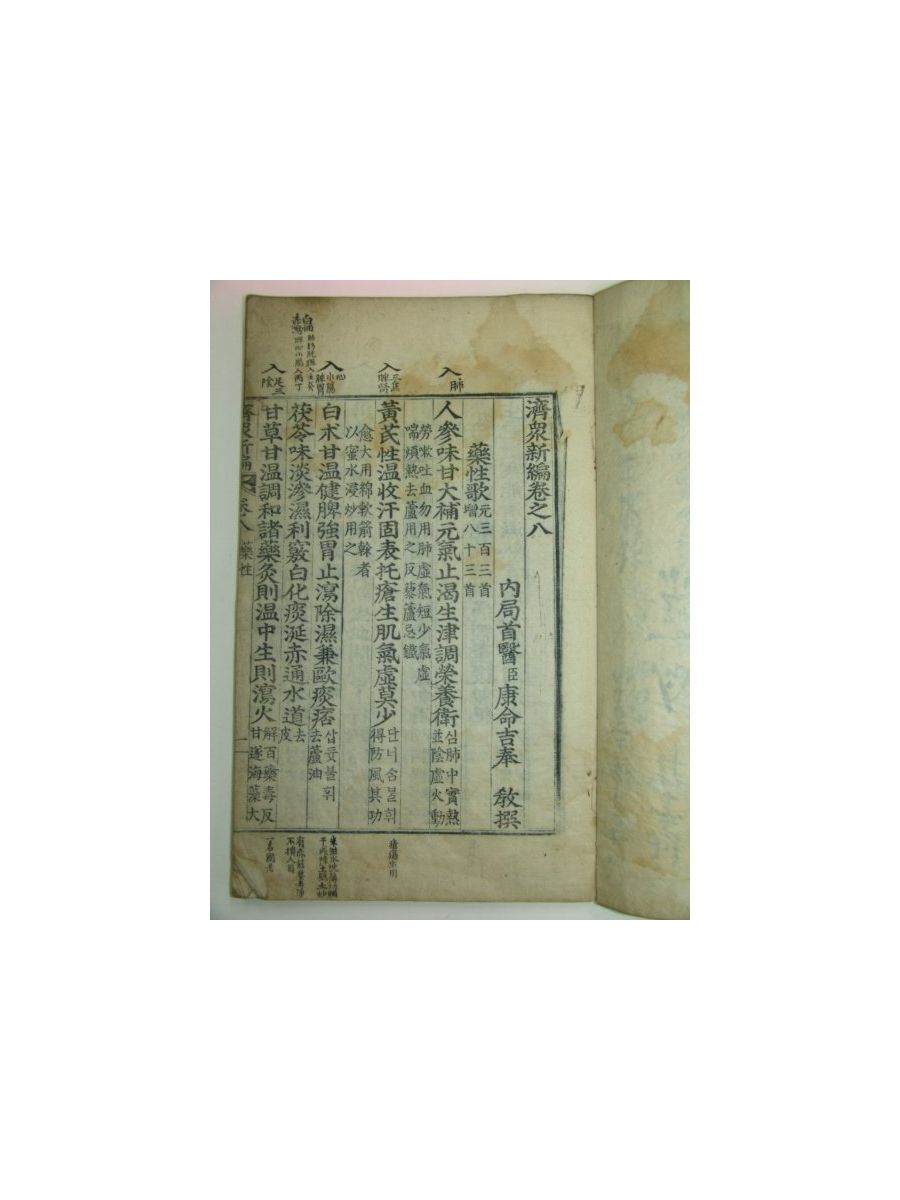 濟衆新編卷之八
內局首醫臣康命吉奉 敎撰
藥性歌元三百三首增八十三首
入肺
人參味甘大補元氣止渴生津調榮養衛심肺中實熱並陰虛火動
勞嗽吐血勿用肺虛氣短少氣虛
喘煩熱去蘆用之反藜蘆忌鐵
入三焦脾腎
黃芪性温收汗固表托瘡生肌氣虛莫少단너솜불휘得防風其功
愈大用綿軟箭榦者
以蜜水浸炒用之
瘡瘍生用
入心小腸脾胃
白朮甘温健脾强胃止瀉除濕兼歐痰痞삽듓불휘去蘆油
茯苓味淡滲濕利竅白化痰涎赤通水道去皮
入足三陰
甘草甘温調和諸藥灸則温中生則瀉火解百藥毒反甘遂海藻大
一名國老
濟衆新編 卷八 藥性 一